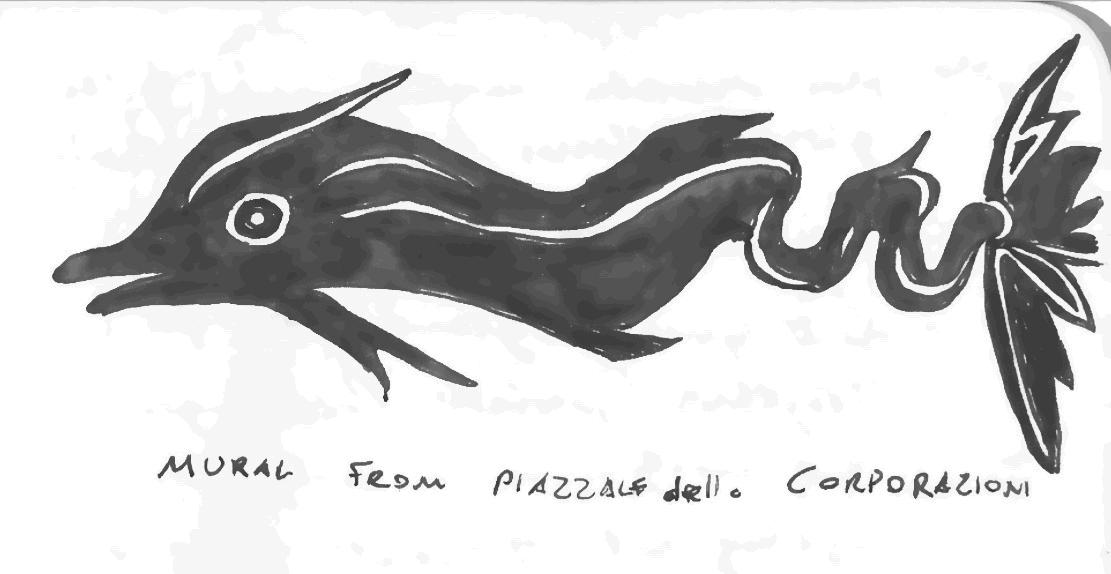 MURAL FROM PIAZZALE dello CORPORAZIONI